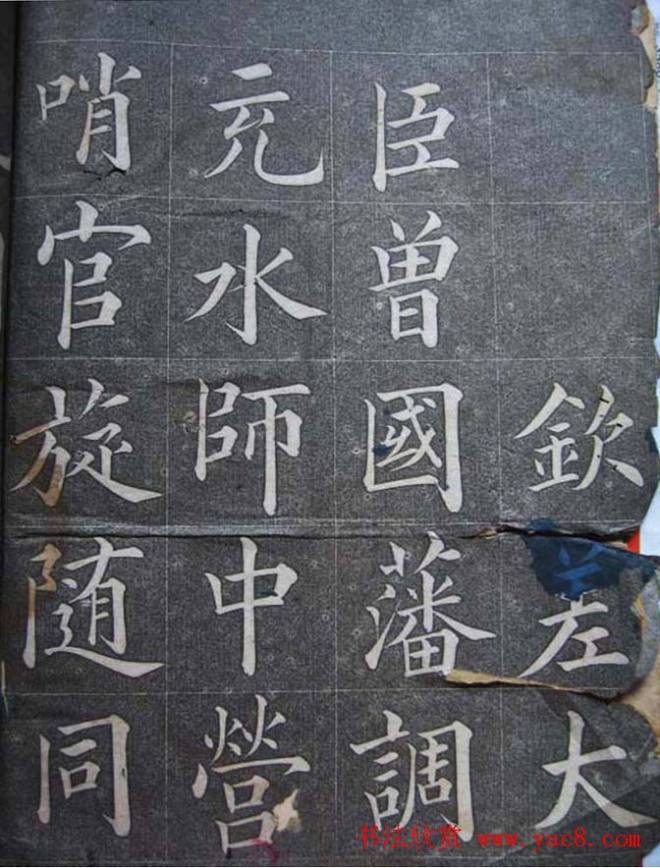 欽差大
臣曾國藩調
充水師中營
哨官旋随同
书法欣赏 www.yac8.com